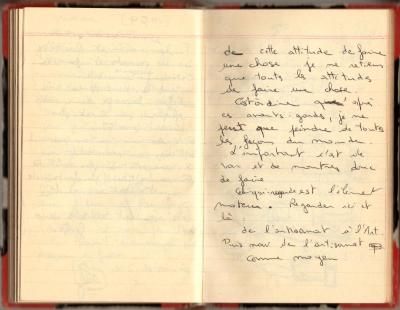 de cette attitude de faire
une chose je ne retiens
que toutes les attitudes
de faire une chose.
C'est à dire que après
ces avants-gardes, je ne
peut que peindre de toutes
les façons du monde.
L'important c'est de
voir et de montrer donc
de faire
Ce qui regarde est l'élément
moteur. Regarder ici et
là
de l'artisanat à l'Art.
Puis non de l'artisanat
comme moyen